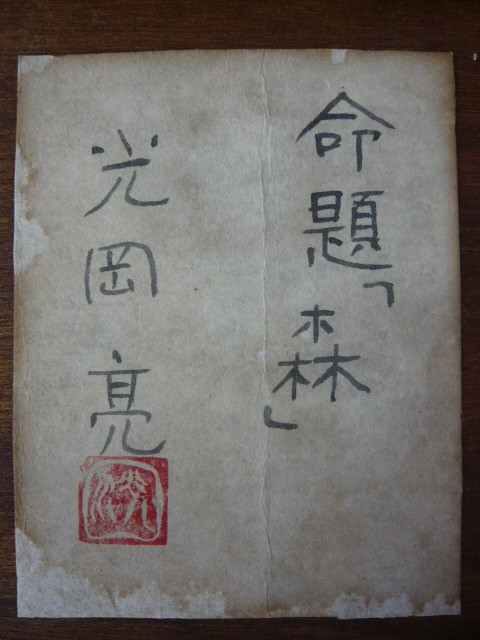 命題「森」
光岡亮